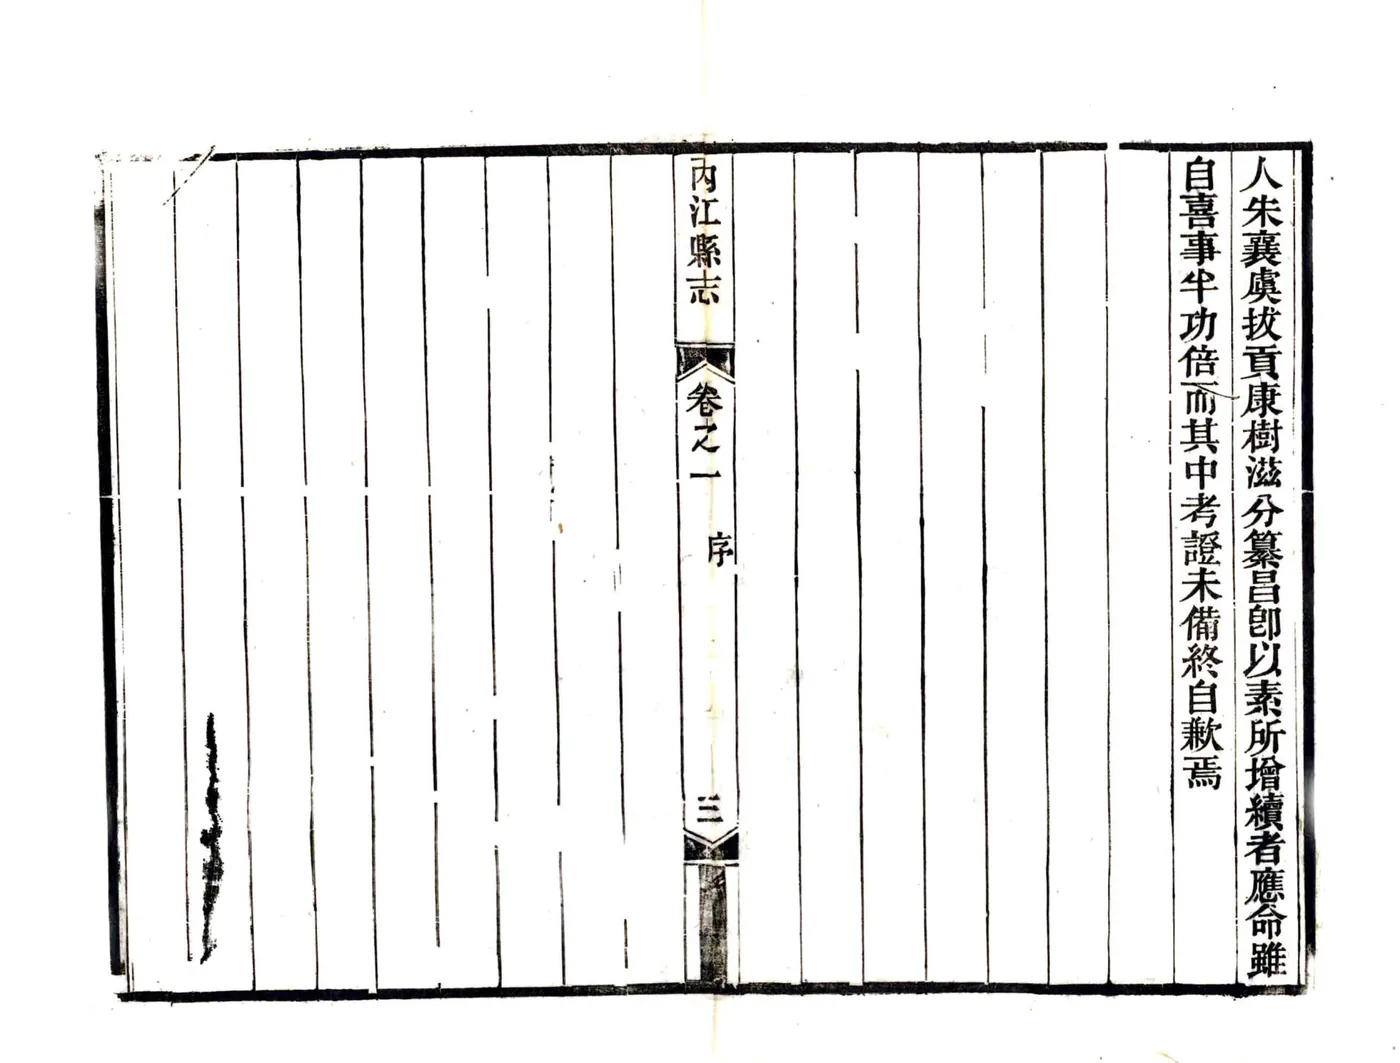 人朱襄虞拔貢康樹滋分纂昌卽以素所增續者應命雖
自喜事半功倍而其中考證未備終自歉焉
內江縣志
卷之一
序
三